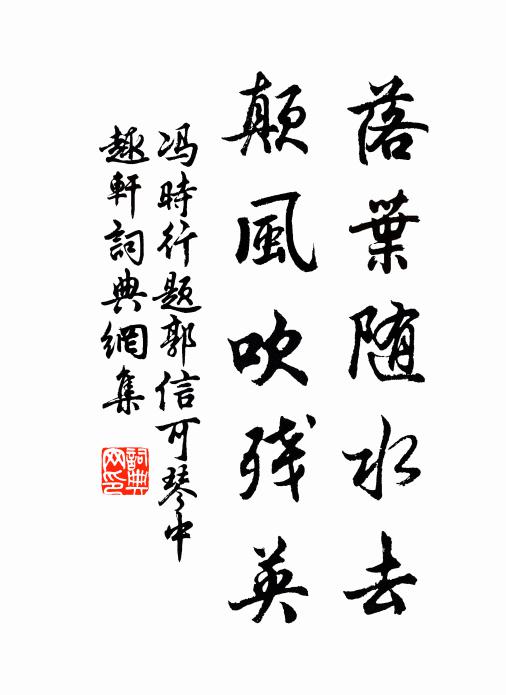 落葉随水去
顛風吹残英
冯時行題郭信可琴中
趣軒詞典網集
詞典
网印